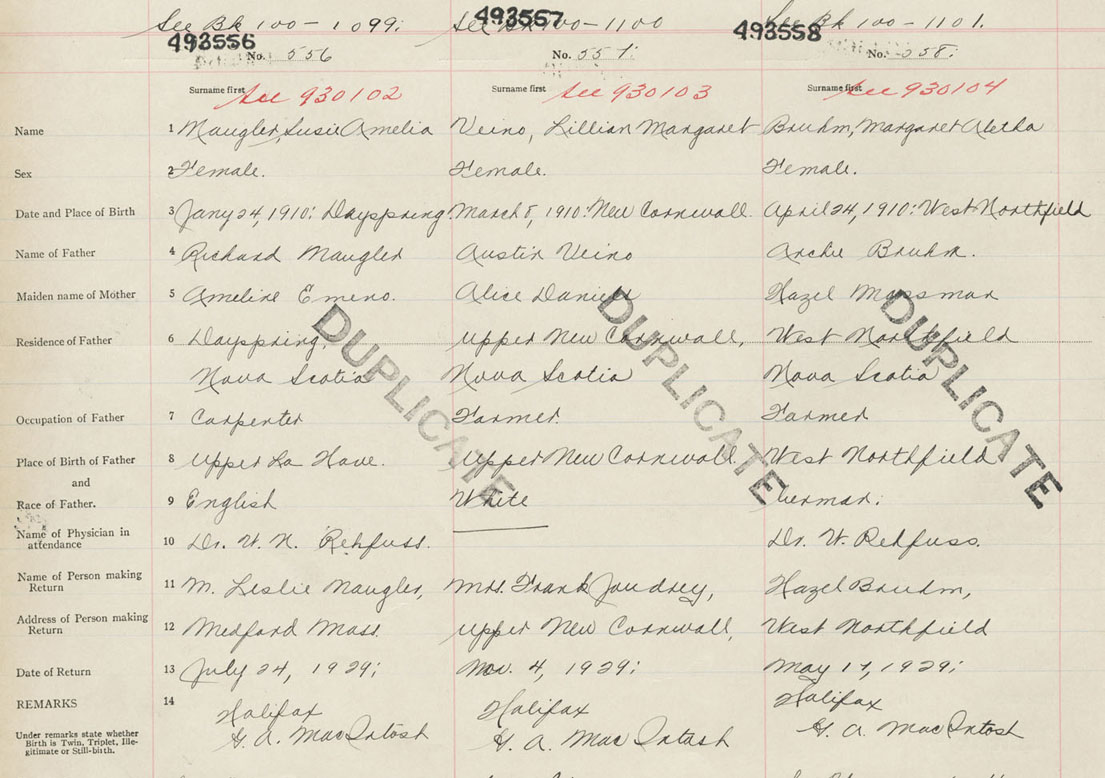 See Bk 100 - 1099. See Bk 100 - 1100 See Bk 100 - 1101.
493556 493557 493558
No. 556 No. 557. No. 558.
Surname first Surname first Surname first
See 930102 See 930103 See 930104
Name 1 Naugler, Susie Amelia Veino, Lillian Margaret Bruhm, Margaret Aletha
Sex 2 Female. Female. Female.
Date and Place of Birth 3 Jany 24, 1910: Dayspring March 8, 1910: New Cornwall. April 24, 1910: West Northfield
Name of Father 4 Richard Naugler Austin Veino Archie Bruhm.
Maiden name of Mother 5 Ameline Emeno. Alice Daniels Hazel Mossman
Residence of Father 6 Dayspring, Upper New Cornwall, West Northfield
Nova Scotia Nova Scotia Nova Scotia
DUPLICATE DUPLICATE DUPLICATE
Occupation of Father 7 Carpenter Farmer. Farmer
Place of Birth of Father 8 Upper La Have. Upper New Cornwall West Northfield
and
Race of Father. 9 English White German.
Name of Physician in
attendance 10 Dr. W. N. Rehfuss. Dr. W. Rehfuss.
Name of Person making
Return 11 M. Leslie Naugler, Mrs. Frank Joudrey, Hazel Bruhm,
Address of Person making
Return 12 Medford Mass. Upper New Cornwall, West Northfield
Date of Return 13 July 24, 1929; Nov. 4, 1929; May 17, 1929;
REMARKS 14 Halifax Halifax Halifax
G. A. MacIntosh G. A. MacIntosh G. A. MacIntosh
Under remarks state whether
Birth is Twin, Triplet, Ille-
gitimate or Still-birth.